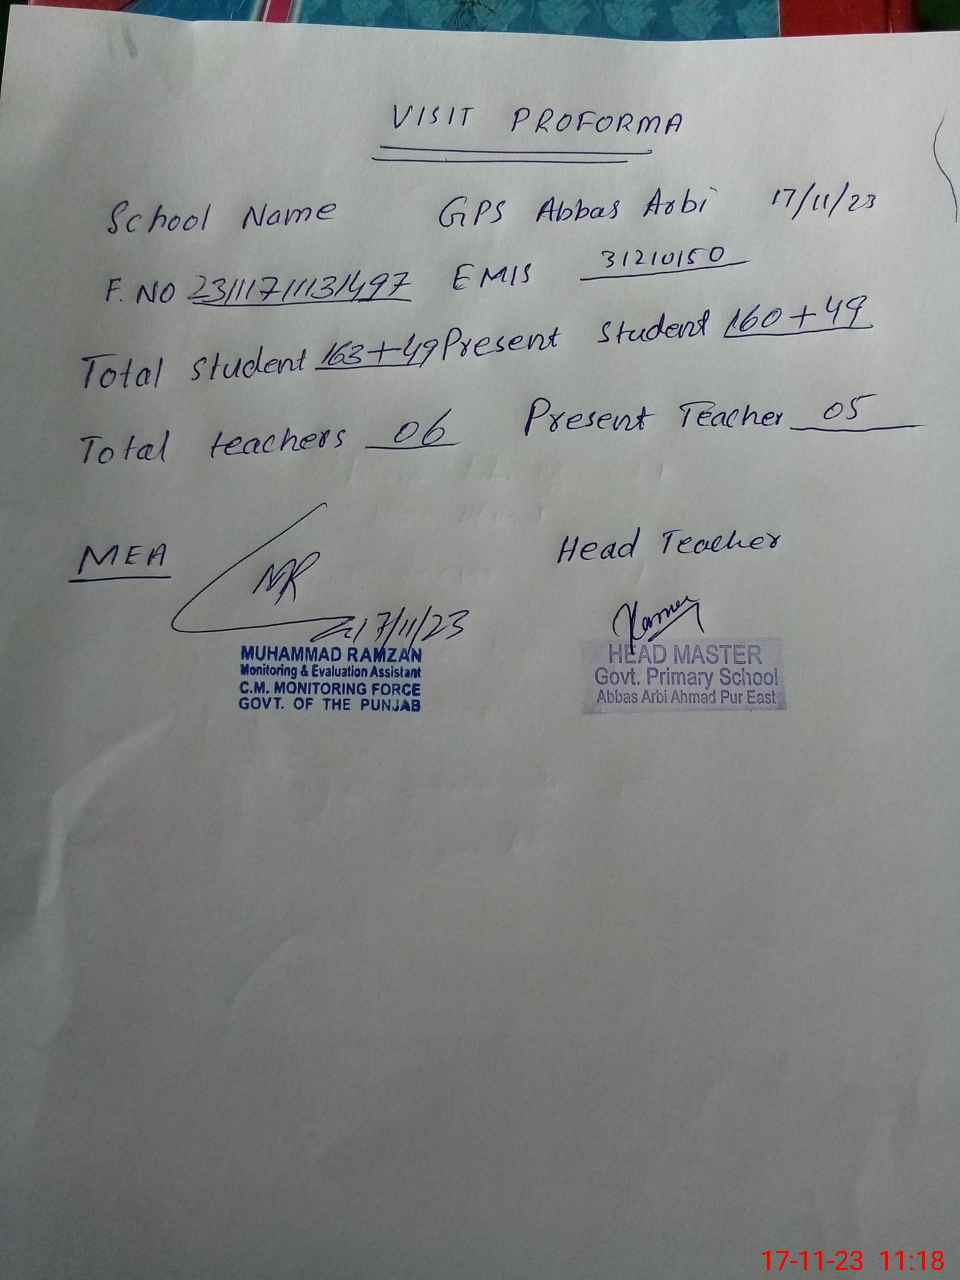 VISIT PROFORMA
School Name GPS Abbas Arbi 17/11/23
F. NO 23111711131497 EMIS 31210150
Total student 163+49 Present student 160+49
Total teachers 06 Present Teacher 05
MEA Head Teacher
17/11/23
MUHAMMAD RAMZAN
Monitoring & Evaluation Assistant
C.M. MONITORING FORCE
GOVT. OF THE PUNJAB
HEAD MASTER
Govt. Primary School
Abbas Arbi Ahmad Pur East
17-11-23 11:18